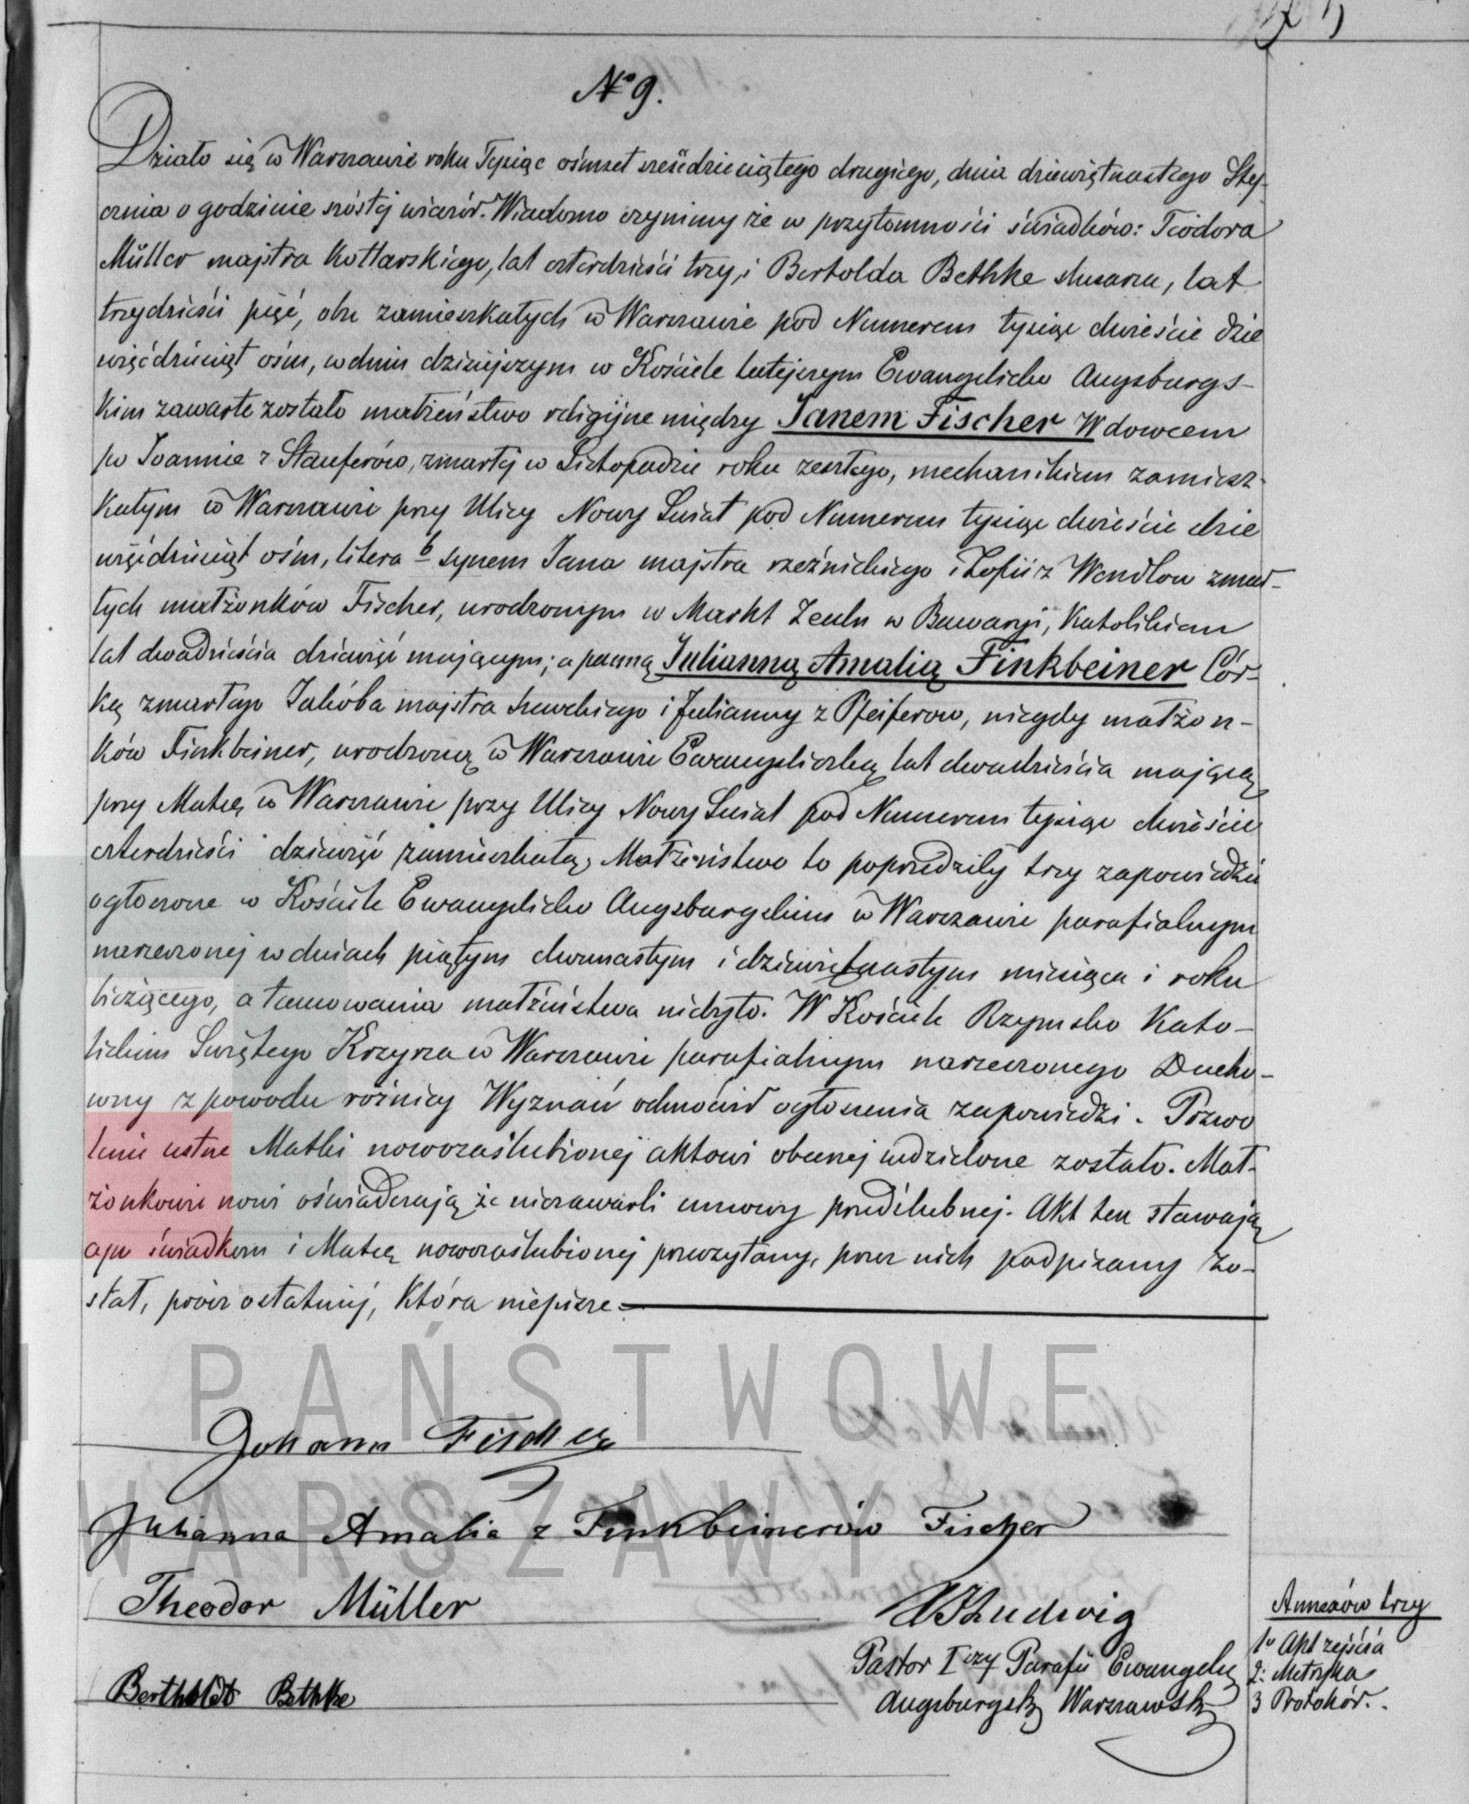 № 9.
Działo się w Warszawie roku Tysiąc ośmset sześćdziesiątego drugiego, dnia dziewiętnastego Sty-
cznia o godzinie szóstej wieczór. Wiadomo czynimy że w przytomności świadków: Teodora
Müller majstra Kotlarskiego, lat czterdzieści trzy, i Bertolda Bethke ślusarza, lat
trzydzieści pięć, obu zamieszkałych w Warszawie pod Numerem tysiąc dwieście dzie
więćdziesiąt ośm, w dniu dzisiejszym w Kościele tutejszym Ewangelicko Augsburgs-
kim zawarte zostało małżeństwo religijne między Janem Fischer Wdowcem
po Joannie z Stauferów, zmarłej w Listopadzie roku zeszłego, mechanikiem zamiesz-
kałym w Warszawie przy Ulicy Nowy Swiat pod Numerem tysiąc dwieście dzie
więćdziesiąt ośm, litera b synem Jana majstra rzeźnickiego i Zofii z Wendlow zmar-
łych małżonków Fischer, urodzonym w Markt Zeuln w Bawaryi, Katolikiem
lat dwadzieścia dziewięć mającym; a panną Julianną Amalią Finkbeiner Cór-
ką zmarłego Jakóba majstra szewckiego i Julianny z Pfeiferow, niegdy małżon-
ków Finkbeiner, urodzoną w Warszawie Ewangeliczką lat dwadzieścia mającą
przy Matce w Warszawie przy Ulicy Nowy Swiat pod Numerem tysiąc dwieście
czterdzieści dziewięć zamieszkałą, Małżeństwo to poprzedziły trzy zapowiedzie
ogłoszone w Kościele Ewangelicko Augsburgskim w Warszawie parafialnym
narzeczonej w dniach piątym dwunastym i dziewiętnastym miesiąca i roku
bieżącego, a tamowania małżeństwa niebyło. W Kościele Rzymsko Kato-
lickim Swiętego Krzyża w Warszawie parafialnym narzeczonego Ducho-
wny z powodu różnicy Wyznań odmówił ogłoszenia zapowiedzi. Pozwo
lenie ustne Matki nowozaślubionej aktowi obecnej udzielone zostało. Mał-
żonkowie nowi oświadczają że niezawarli umowy przedślubnej. Akt ten stawają
cym świadkom i Matce nowozaślubionej przeczytany, przez nich podpisany zo-
stał, prócz ostatniej, która niepisze
PAŃSTWOWE
WARSZAWY
Johann Fischer
Julianna Amalia z Finkbeinerów Fischer
Theodor Müller
Bertholdt Bethke
Ludwig
Pastor Iszy Parafii Ewangelic
Augsburgsk Warszawsk
Annexów trzy
1o Akt zejścia
2: Metryka
3 Protokół.